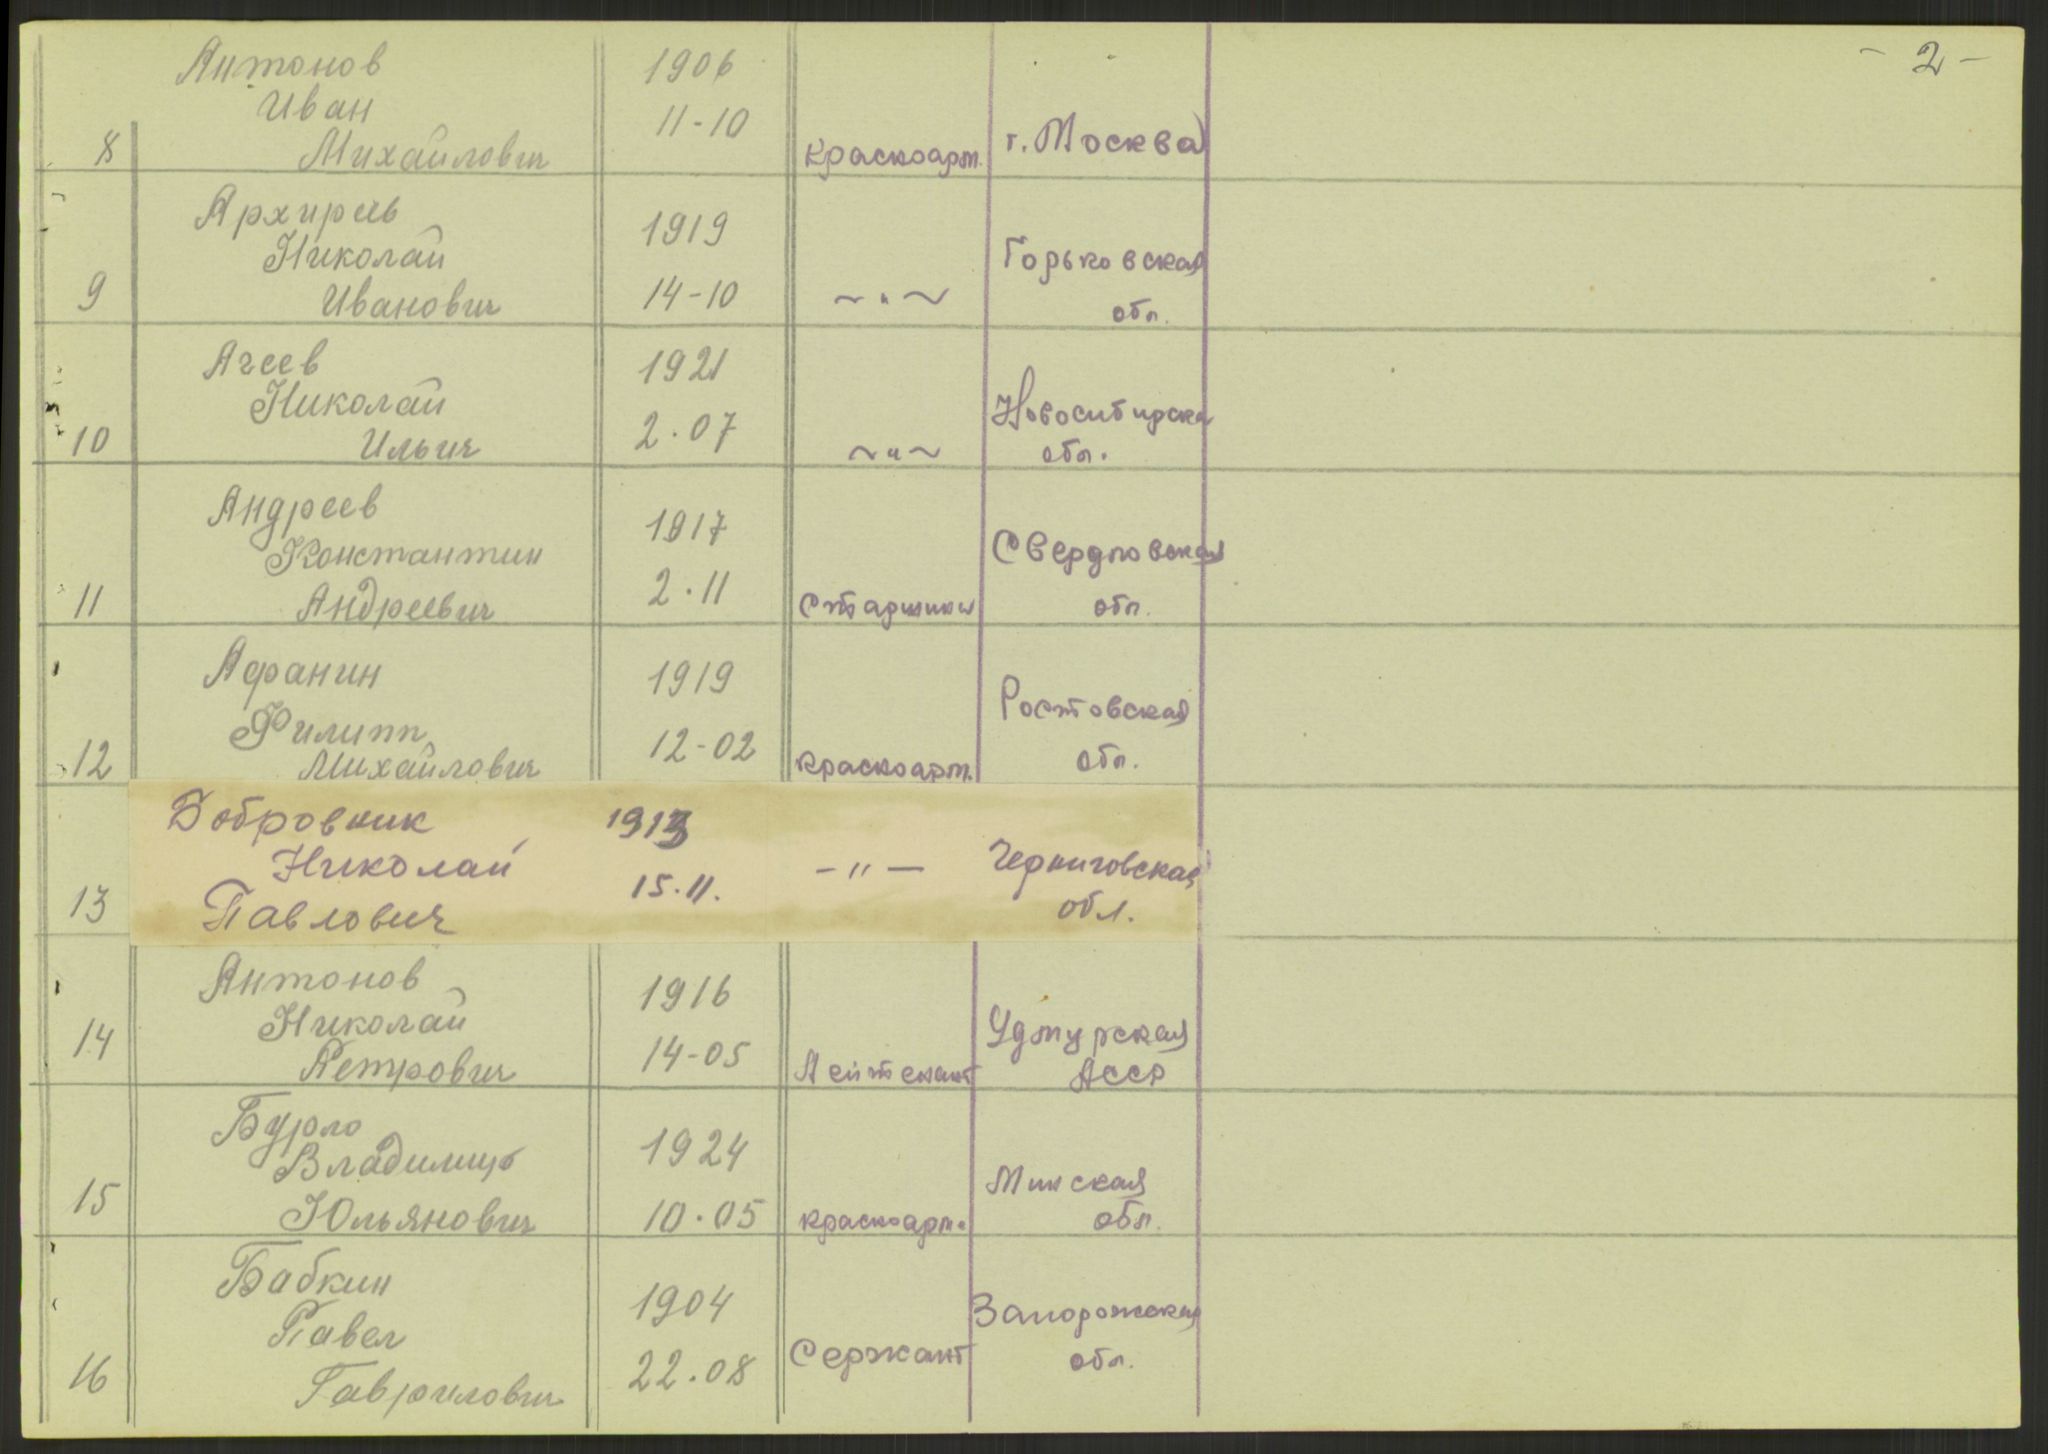 - 2 -
Антонов 1906
Иван 11-10
8 Михайлович Красноарм. г. Москва
Архирев 1919
Николай Горьковская
9 Иванович 14-10 ~ " ~ обл.
Агеев 1921
Николай Новосибирска
10 Ильич 2.07 ~ " ~ обл.
Андреев 1917
Константин Свердловская
11 Андреевич 2.11 Старшина обл.
Афанин 1919
Филипп Ростовская
12 Михайлович 12-02 Красноарм. обл.
Бобровник 1913
Николай - " - Черниговская
13 Павлович 15.11. обл.
Антонов 1916
Николай Удмурская
14 Петрович 14-05 Лейтенант АССР
Бурло 1924
Владимир Минская
15 Юльянович 10.05 красноарм. обл.
Бабкин 1904
Павел Запорожская
16 Гаврилович 22.08 Сержант обл.